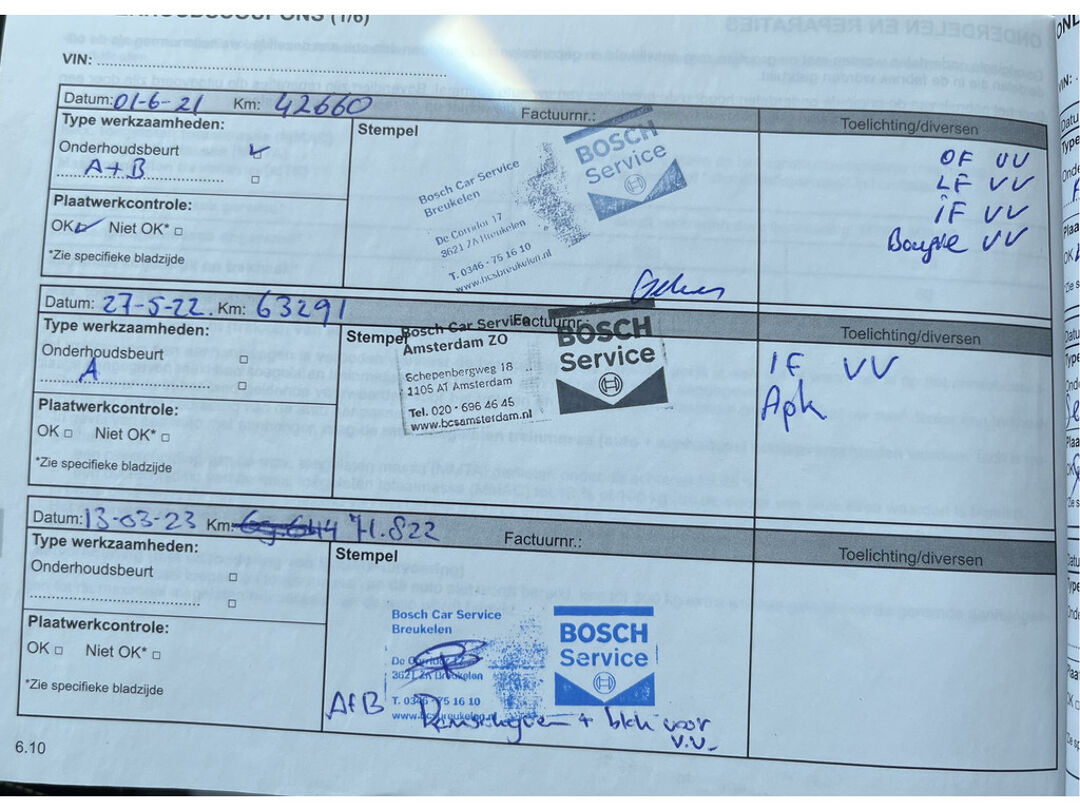 (1/6)
VIN:
Datum: 01-6-21 Km: 42660 Factuurnr.: Toelichting/diversen
Type werkzaamheden:
Stempel
Onderhoudsbeurt
A+B
Plaatwerkcontrole:
OK Niet OK*
*Zie specifieke bladzijde
Bosch Car Service
Breukelen
De Corridor 17
3621 ZA Breukelen
T. 0346 - 75 16 10
www.bcsbreukelen.nl
BOSCH
Service
OF VV
LF VV
iF VV
Bougie VV
Datum: 27-5-22. Km: 63291 Factuurnr.: Toelichting/diversen
Type werkzaamheden:
Stempel
Onderhoudsbeurt
A
Plaatwerkcontrole:
OK Niet OK*
*Zie specifieke bladzijde
Bosch Car Service
Amsterdam ZO
Schepenbergweg 18
1105 AT Amsterdam
Tel. 020 - 696 46 45
www.bcsamsterdam.nl
BOSCH
Service
IF VV
Apk
Datum: 13-03-23 Km: 71.822 Factuurnr.: Toelichting/diversen
Type werkzaamheden:
Stempel
Onderhoudsbeurt
Plaatwerkcontrole:
OK Niet OK*
*Zie specifieke bladzijde
Bosch Car Service
Breukelen
De Corridor 17
3621 ZA Breukelen
T. 0346 - 75 16 10
www.bcsbreukelen.nl
BOSCH
Service
A+B
+ voor
V.V.
6.10